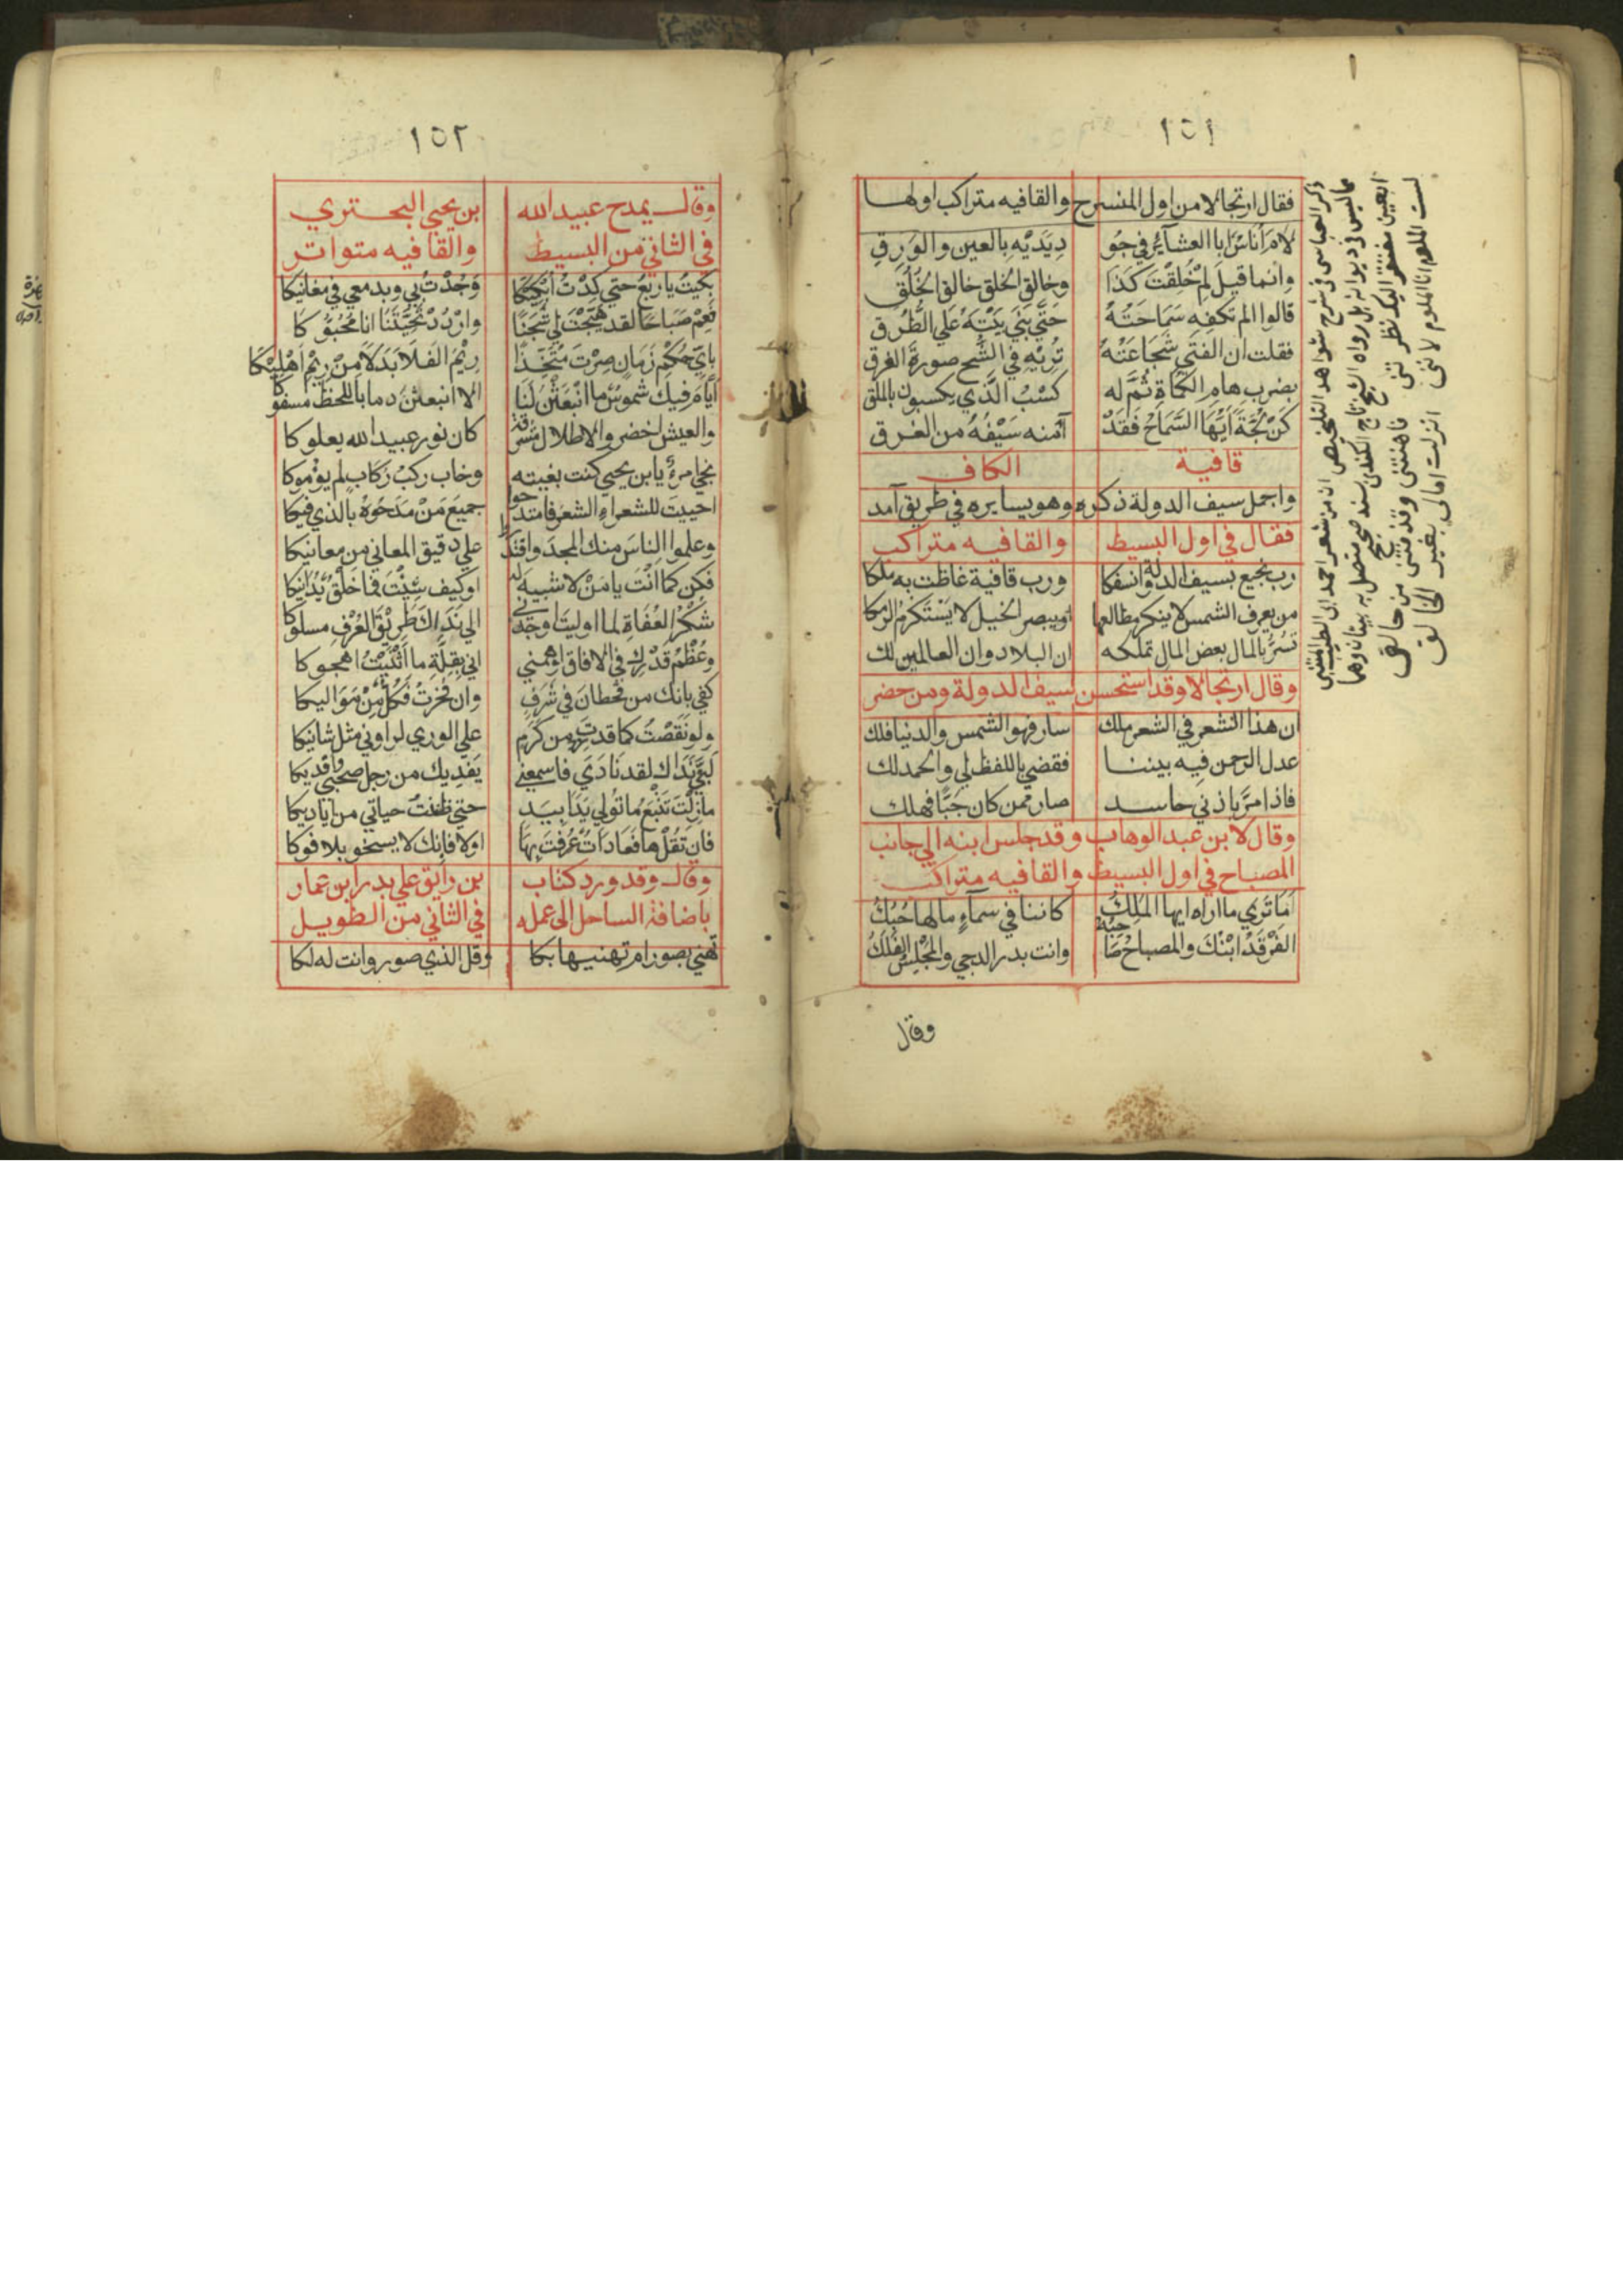 ١٥١
فقال ارتجالا من اول المنسرح والقافيه متراكب اولها
لامَ أُناسٌ ابا العشآئر في جُو دِ يَدَيْهِ بِالعين والوَرِقِ
وانما قيلَ لِمْ خُلِقْتَ كَذَا وخالق الخلق خالق الخُلُقِ
قالوا الم تكفهِ سَمَاحَتُهُ حَتَّي بَنَي بَيْتَهُ عَلي الطُّرُقِ
فقلت ان الفتي شَجَاعَتُهُ تُرِيْهِ في الشُّح صورةَ الغرقِ
بضربِ هامِ الكُمَاةِ ثُمَّ له كَسْبُ الَّذي يكسبون بالملق
كُنْ لُجَّةً ايَّهَا السَّمَاحُ فَقَدْ آمنه سَيْفُهُ من الغرق
قافية الكاف
واجمل سيف الدولة ذكره وهو يسايره في طريق آمد
فقال في اول البسيط والقافيه متراكب
رب نجيع بسيف الدولة انسفكا ورب قافية غاظت به ملكا
من يعرف الشمس لا ينكر مطالعها اويبصر الخيل لا يَسْتَكْرِمُ الرمكا
تَسُرُّ بالمال بعض المال تملكه ان البلاد وان العالمين لك
وقال ارتجالا وقد استحسن سيف الدولة ومن حضر
ان هذا الشعر في الشعر ملك سار فهو الشمس والدنيا فلك
عدل الرحمن فيه بيننا فقضي باللفظ لي والحمد لك
فاذا مرَّ باذني حاسد صار ممن كان حَيًّا فهلك
وقال لابن عبد الوهاب وقد جلس ابنه الي جانب
المصباح في اول البسيط والقافيه متراكب
اَمَا تَرَي ما اراه ايها المَلِكُ كاننا في سمآءٍ مالها حُبُكُ
الفَرْقَدُ ابْنُكَ والمصباحُ صَاحِبُهُ وانت بدر الدجي والمجْلِسُ الفَلَكُ
وقال
ذكر العباسي في شرح شواهد التلخيص ان من شعر احمد ابي الطيب المتنبي
مما ليس في ديوانه بل رواه الشيخ تاج الكندي بسند صحيح متصل به بيتان وهما
ابعين مفتقر اليك نظرتني فاهنتني وقذفتني من حالق
لست الملوم انا الملوم لانني انزلت امالي بغير الخالق
١٥٢
وقال يمدح عبيد الله بن يحيي البحتري
في الثاني من البسيط والقافيه متواتر
بكيتُ يا ربعُ حتي كِدْتُ اُبْكِيْكَا وَجُدْتُ بي وبدمعي في مغانيكا
فَعِمْ صَبَاحًا لقد هَيَّجْتَ لي شَجَنًا وارْدُدْ تَحِيَّتَنَا انا مُحَيُّوكَا
باي حُكْمِ زَمَانٍ صِرْتَ مُتَّخِذًا رِيْمَ الفَلَا بَدَلًا مِنْ رِيْمِ اَهْلِيْكَا
اَيَّامَ فيك شموسٌ ما انْبَعَثْنَ لَنَا الا انبعثنَ دما باللحظ مسفوكا
والعيش اخضر والاطلال مشرقة كان نور عبيد الله يعلوكا
نجا امرءٌ يا ابن يحيي كنت بغيته وخاب ركبُ ركابٍ لم يؤموكا
احييتَ للشعراءِ الشعرَ فامتدحوا جميعَ مَنْ مَدَحُوْهُ بالذي فيكا
وعلموا الناسَ منك المجدَ واقتدروا علي دقيق المعاني من معانيكا
فكن كما اَنْتَ يا مَنْ لا شبيهَ له اوكيف شِئْتَ فما خَلْقٌ يُدَانيكا
شُكْرُ العُفَاةِ لما اوليتَ اوجَدَني الي نَدَاكَ طَرِيْقَ العُرْفِ مسلوكا
وعُظْمُ قَدْرِكَ في الافاق اوهمني اني بِقِلَّةِ ما اَثْنَيْتُ اهجوكا
كفي بانك من قحطانَ في شَرَفٍ وان فخرتَ فكلٌّ مِنْ مَوَاليكا
ولو نَقَصْتُ كما قد زِدتَ من كَرَمٍ علي الوري لراوني مثلَ شانيكا
لَبَّيْ نَدَاكَ لقد نَادَي فاسمعني يَفْدِيك من رجلٍ صحبي وافديكا
مازِلْتَ تُتْبِعُ ما تُولي يَدًا بيَدٍ حتي ظننتُ حياتي من اياديكا
فان تَقُلْ ها فَعَادَاتٌ عُرِفْتَ بِهَا اولا فانك لا يسخو بلا فوكا
وقال وقد ورد كتاب بن رايق علي بدر ابن عمار
باضافة الساحل الى عمله في الثاني من الطويل
تهني بصور ام تهنيها بكا وقل الذي صور وانت له لكا